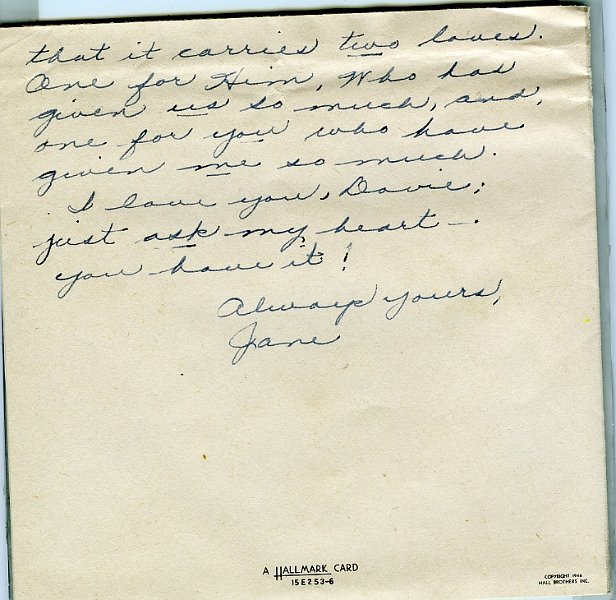 that it carries two loves.
One for Him, Who has
given us so much, and,
one for you who have
given me so much.
I love you, Davie;
just ask my heart —.
you have it!
Always yours,
Jane
A HALLMARK CARD
15E253-6
COPYRIGHT 1946
HALL BROTHERS INC.